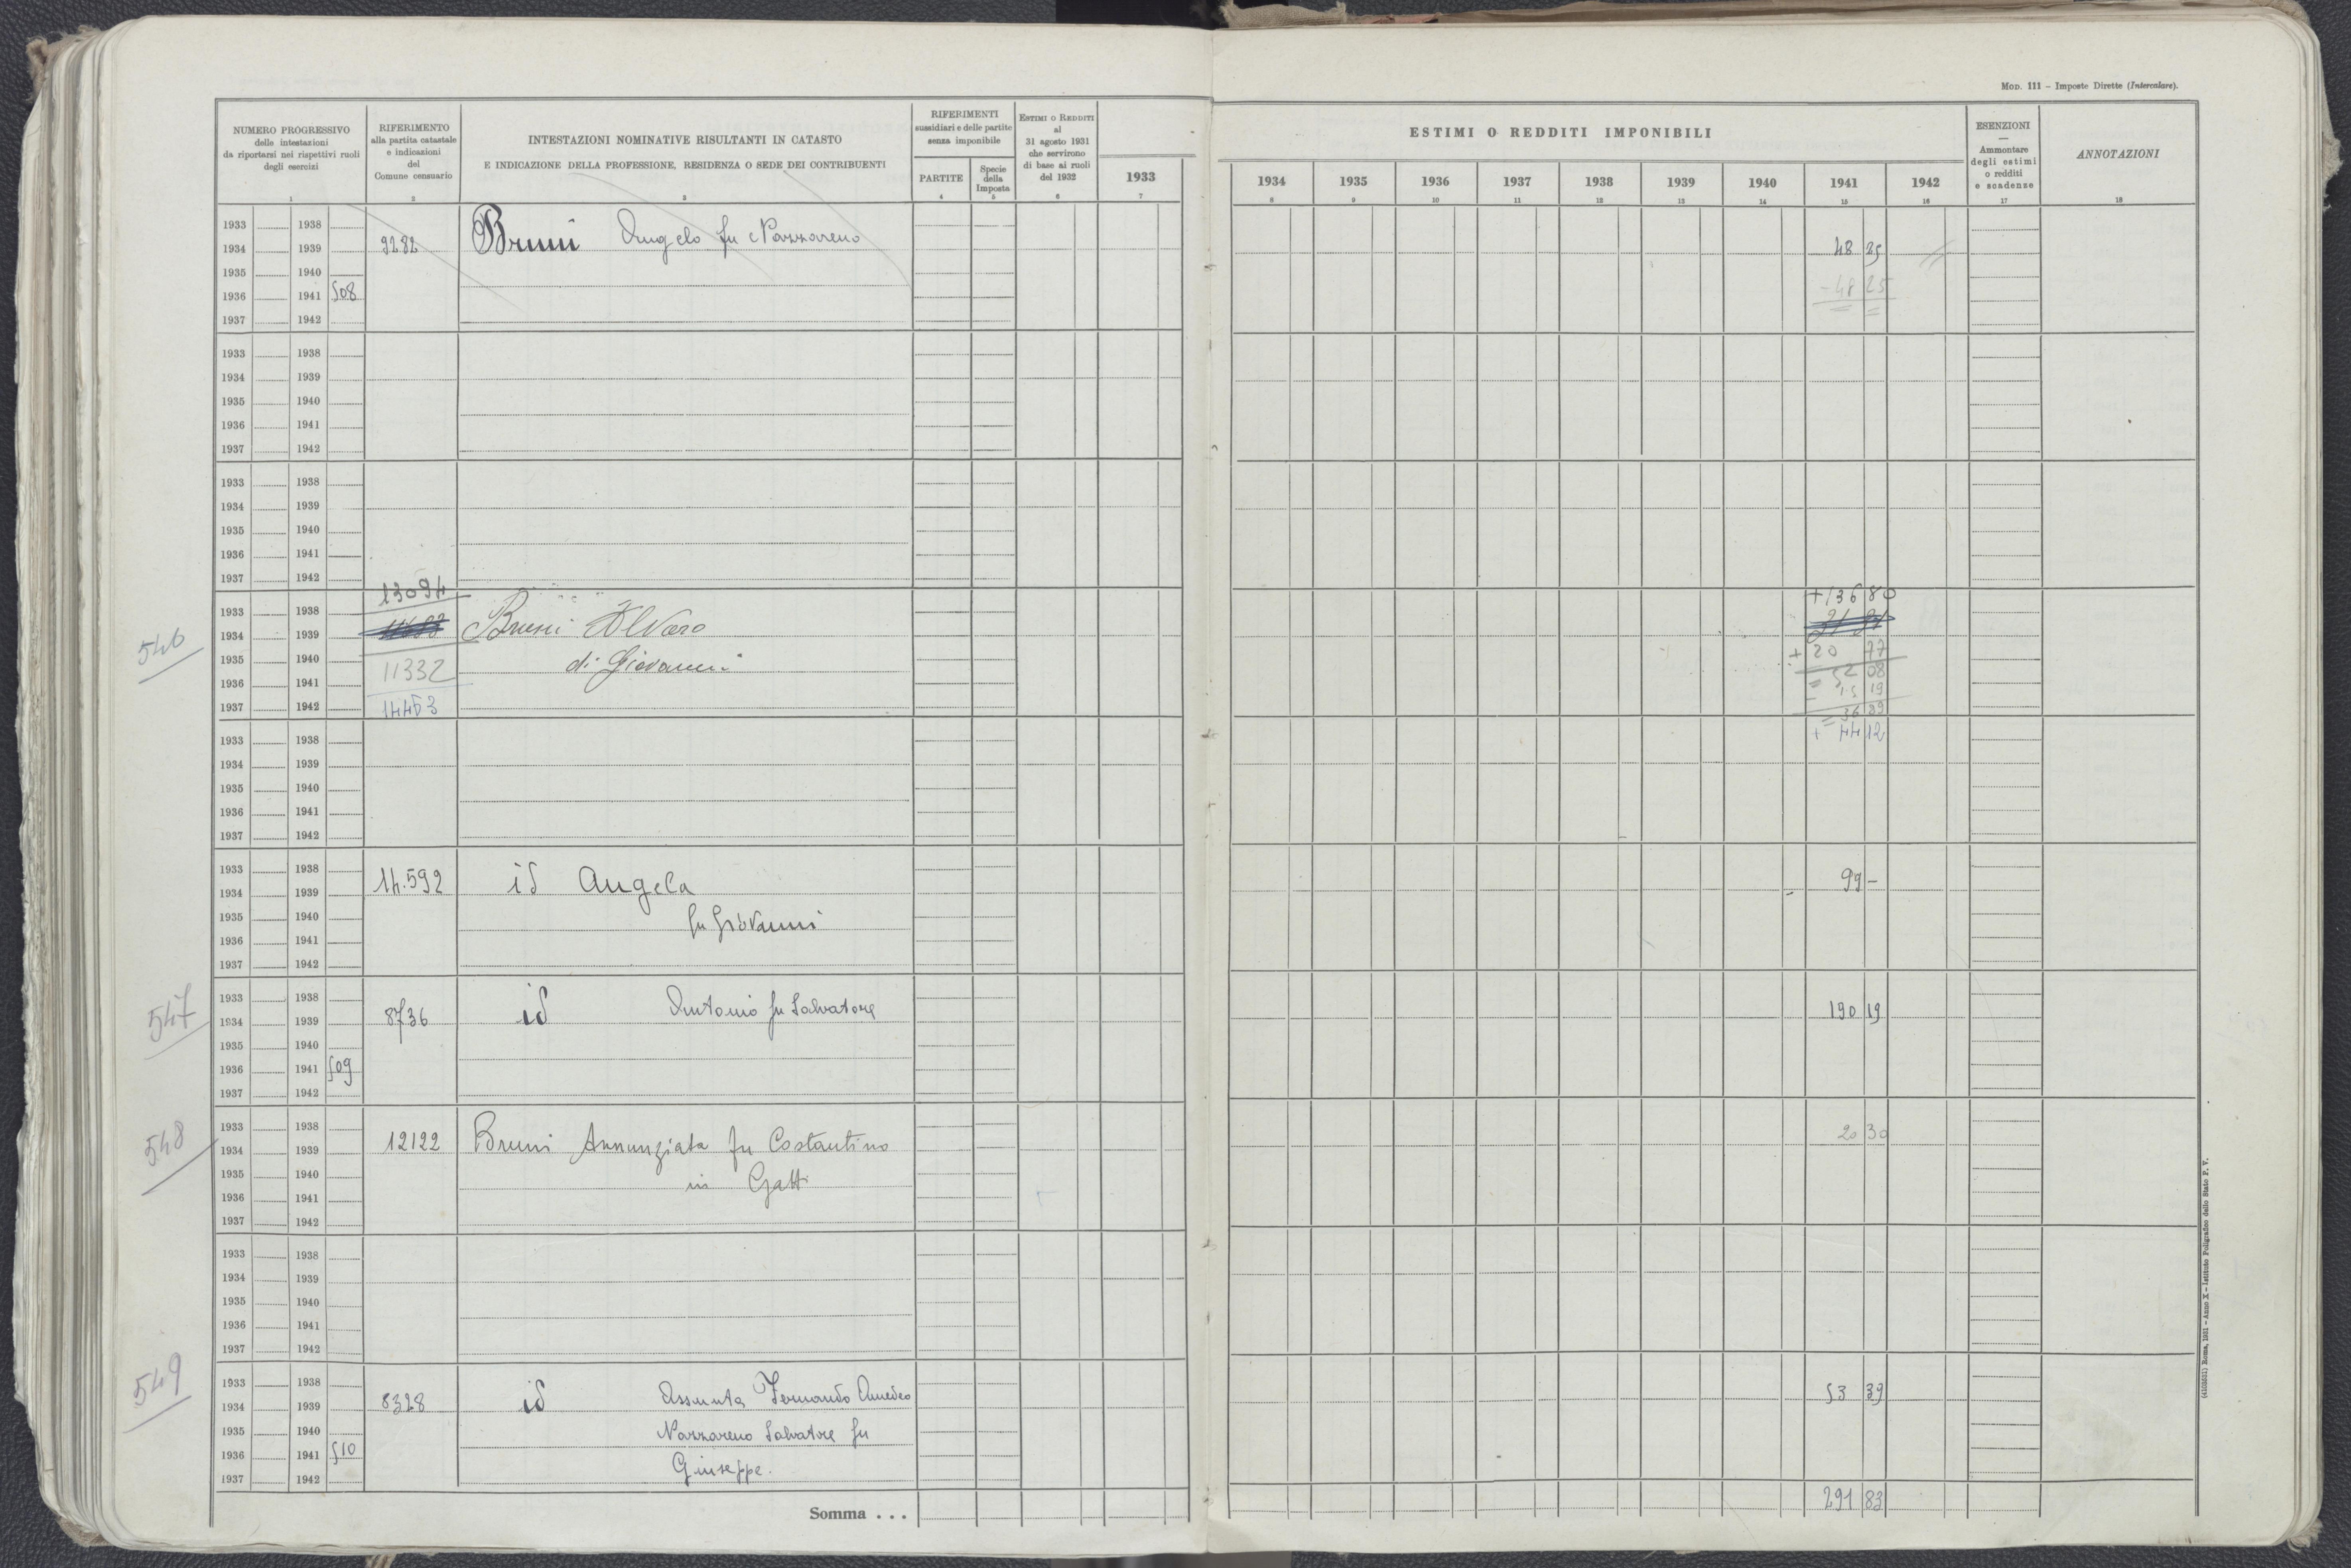 MOD. 111 – Imposte Dirette (Intercalare).
NUMERO PROGRESSIVO
delle intestazioni
da riportarsi nei rispettivi ruoli
degli esercizi
1
RIFERIMENTO
alla partita catastale
e indicazioni
del
Comune censuario
2
INTESTAZIONI NOMINATIVE RISULTANTI IN CATASTO
E INDICAZIONE DELLA PROFESSIONE, RESIDENZA O SEDE DEI CONTRIBUENTI
3
RIFERIMENTI
sussidiari e delle partite
senza imponibile
PARTITE
4
Specie
della
Imposta
5
ESTIMI O REDDITI
al
31 agosto 1931
che servirono
di base ai ruoli
del 1932
6
1933
7
ESTIMI O REDDITI IMPONIBILI
1934 1935 1936 1937 1938 1939 1940 1941 1942
8 9 10 11 12 13 14 15 16
ESENZIONI
—
Ammontare
degli estimi
o redditi
e scadenze
17
ANNOTAZIONI
18
1933 1938
1934 1939 9282 Bruni Angelo fu Nazzareno 48 25
1935 1940
1936 1941 508 -48 25
1937 1942
1933 1938
1934 1939
1935 1940
1936 1941
1937 1942
1933 1938
1934 1939
1935 1940
1936 1941
1937 1942
13094 +136 80
1933 1938
546 1934 1939 Bruni Alvaro
1935 1940 di Giovanni + 20 77
1936 1941 11332 = 52 08
- 15 19
1937 1942 14463 = 36 89
1933 1938 + 44 12
1934 1939
1935 1940
1936 1941
1937 1942
1933 1938
1934 1939 14.592 id Angela 99 –
1935 1940 fu Giovanni
1936 1941
1937 1942
1933 1938
547 1934 1939 8736 id Antonio fu Salvatore 190 19
1935 1940
1936 1941 509
1937 1942
1933 1938
548 1934 1939 12122 Bruni Annunziata fu Costantino 20 30
1935 1940 in Gatti
1936 1941
1937 1942
1933 1938
1934 1939
1935 1940
1936 1941
1937 1942
1933 1938
549 1934 1939 8328 id Assunta Fernando Amedeo 53 39
1935 1940 Nazzareno Salvatore fu
1936 1941 510 Giuseppe.
1937 1942
Somma . . . 291 83
(4103531) Roma, 1931 – Anno X – Istituto Poligrafico dello Stato P. V.